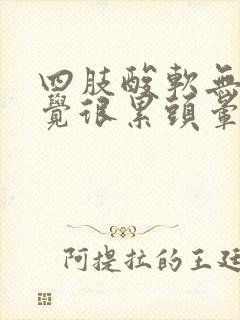 四肢酸軟無
覺很累頭暈
阿提拉的王廷